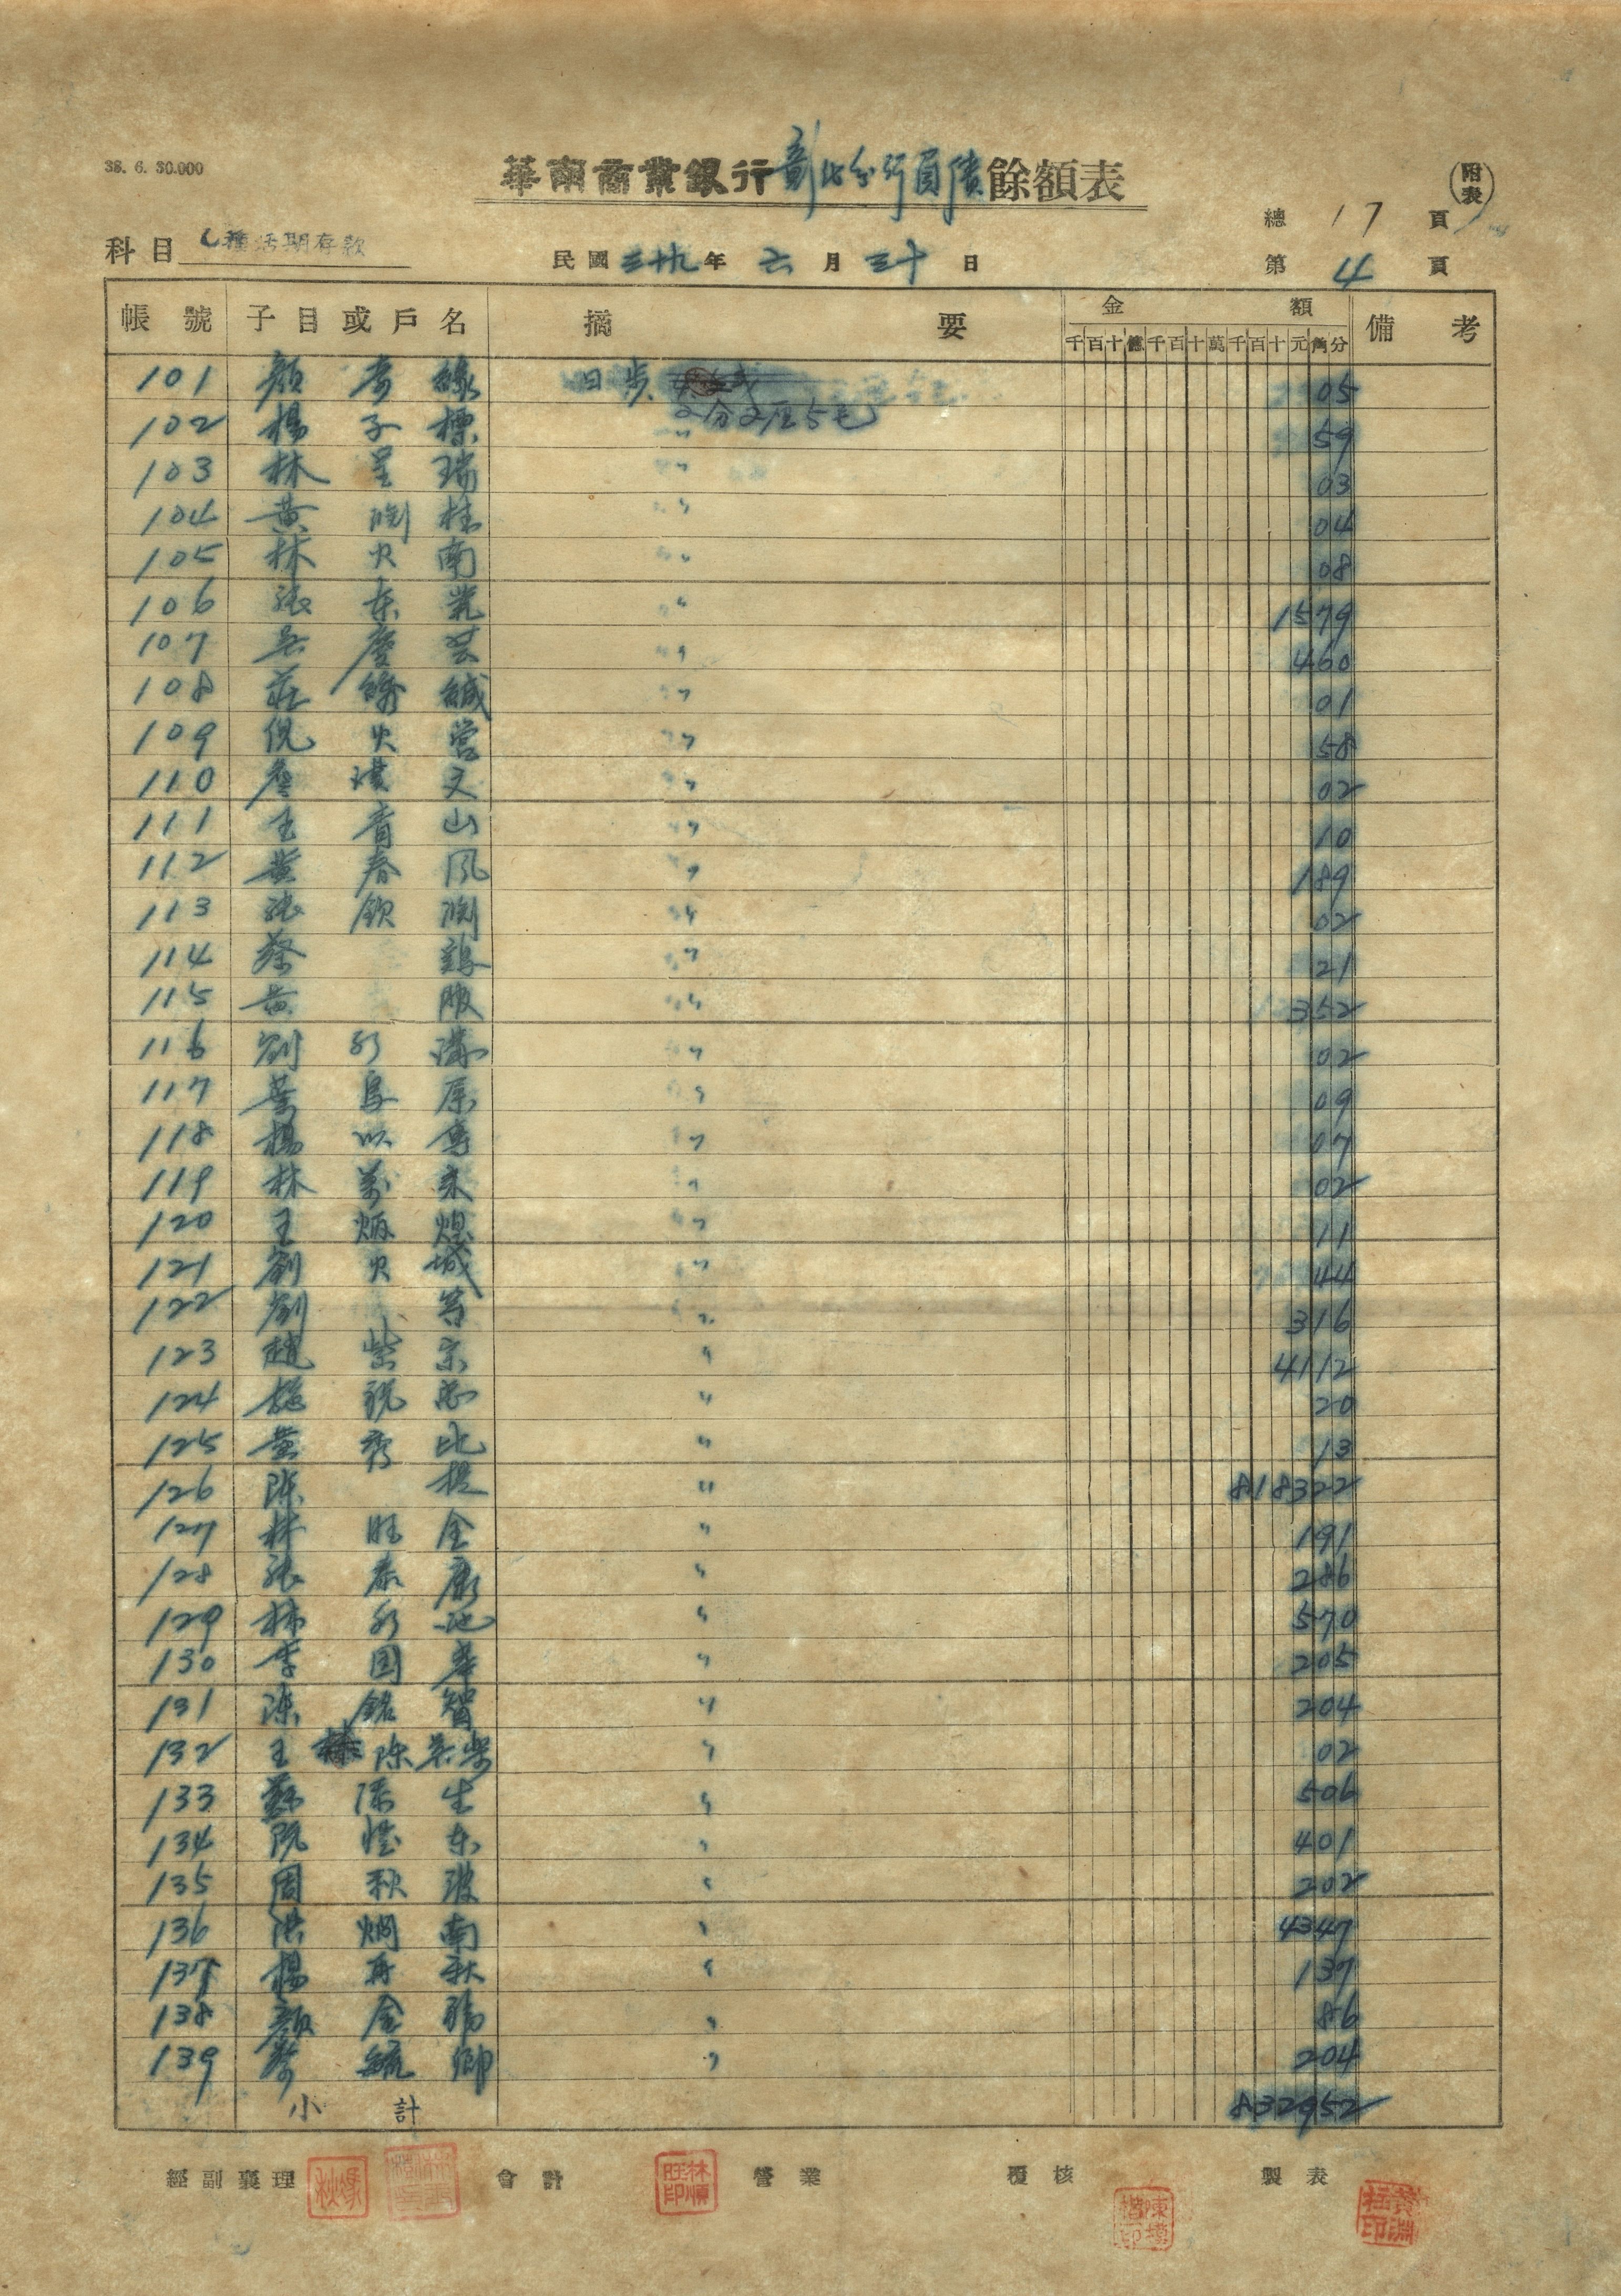 38. 6. 30.000
華南商業銀行彰化分行負債餘額表
附表
總 17 頁
科目 乙種活期存款
民國三十九年六月三十日
第 4 頁
帳號 子目或戶名 摘要 金額 備考
千百十億千百十萬千百十元角分
101 顏 日步 05
2分2厘5毛
102 楊子標 〃 59
103 林呈瑞 〃 03
104 黃淵桂 〃 04
105 林火南 〃 08
106 張東 〃 1579
107 吳慶芸 〃 460
108 莊 〃 01
109 倪火營 〃 58
110 詹 文 〃 02
111 王育山 〃 10
112 黃春風 〃 189
113 張欽淵 〃 02
114 蔡 〃 21
115 黃服 〃 352
116 劉 〃 02
117 葉 〃 09
118 楊以專 〃 07
119 林萬來 〃 02
120 王炳煌 〃 11
121 劉火城 〃 44
122 劉 〃 316
123 趙紫宗 〃 4112
124 施 〃 20
125 黃秀 〃 13
126 陳提 〃 818322
127 林旺全 〃 191
128 張泰康 〃 286
129 林 〃 570
130 李国 〃 205
131 陳銘智 〃 204
132 王陳 〃 02
133 蘇添生 〃 506
134 阮 東 〃 401
135 周秋波 〃 202
136 洪炯南 〃 4347
137 楊再秋 〃 137
138 顏金 〃 86
139 蔡毓卿 〃 204
小計 832952
經副襄理 會計 營業 覆核 製表
林順旺印
黃淵桂印